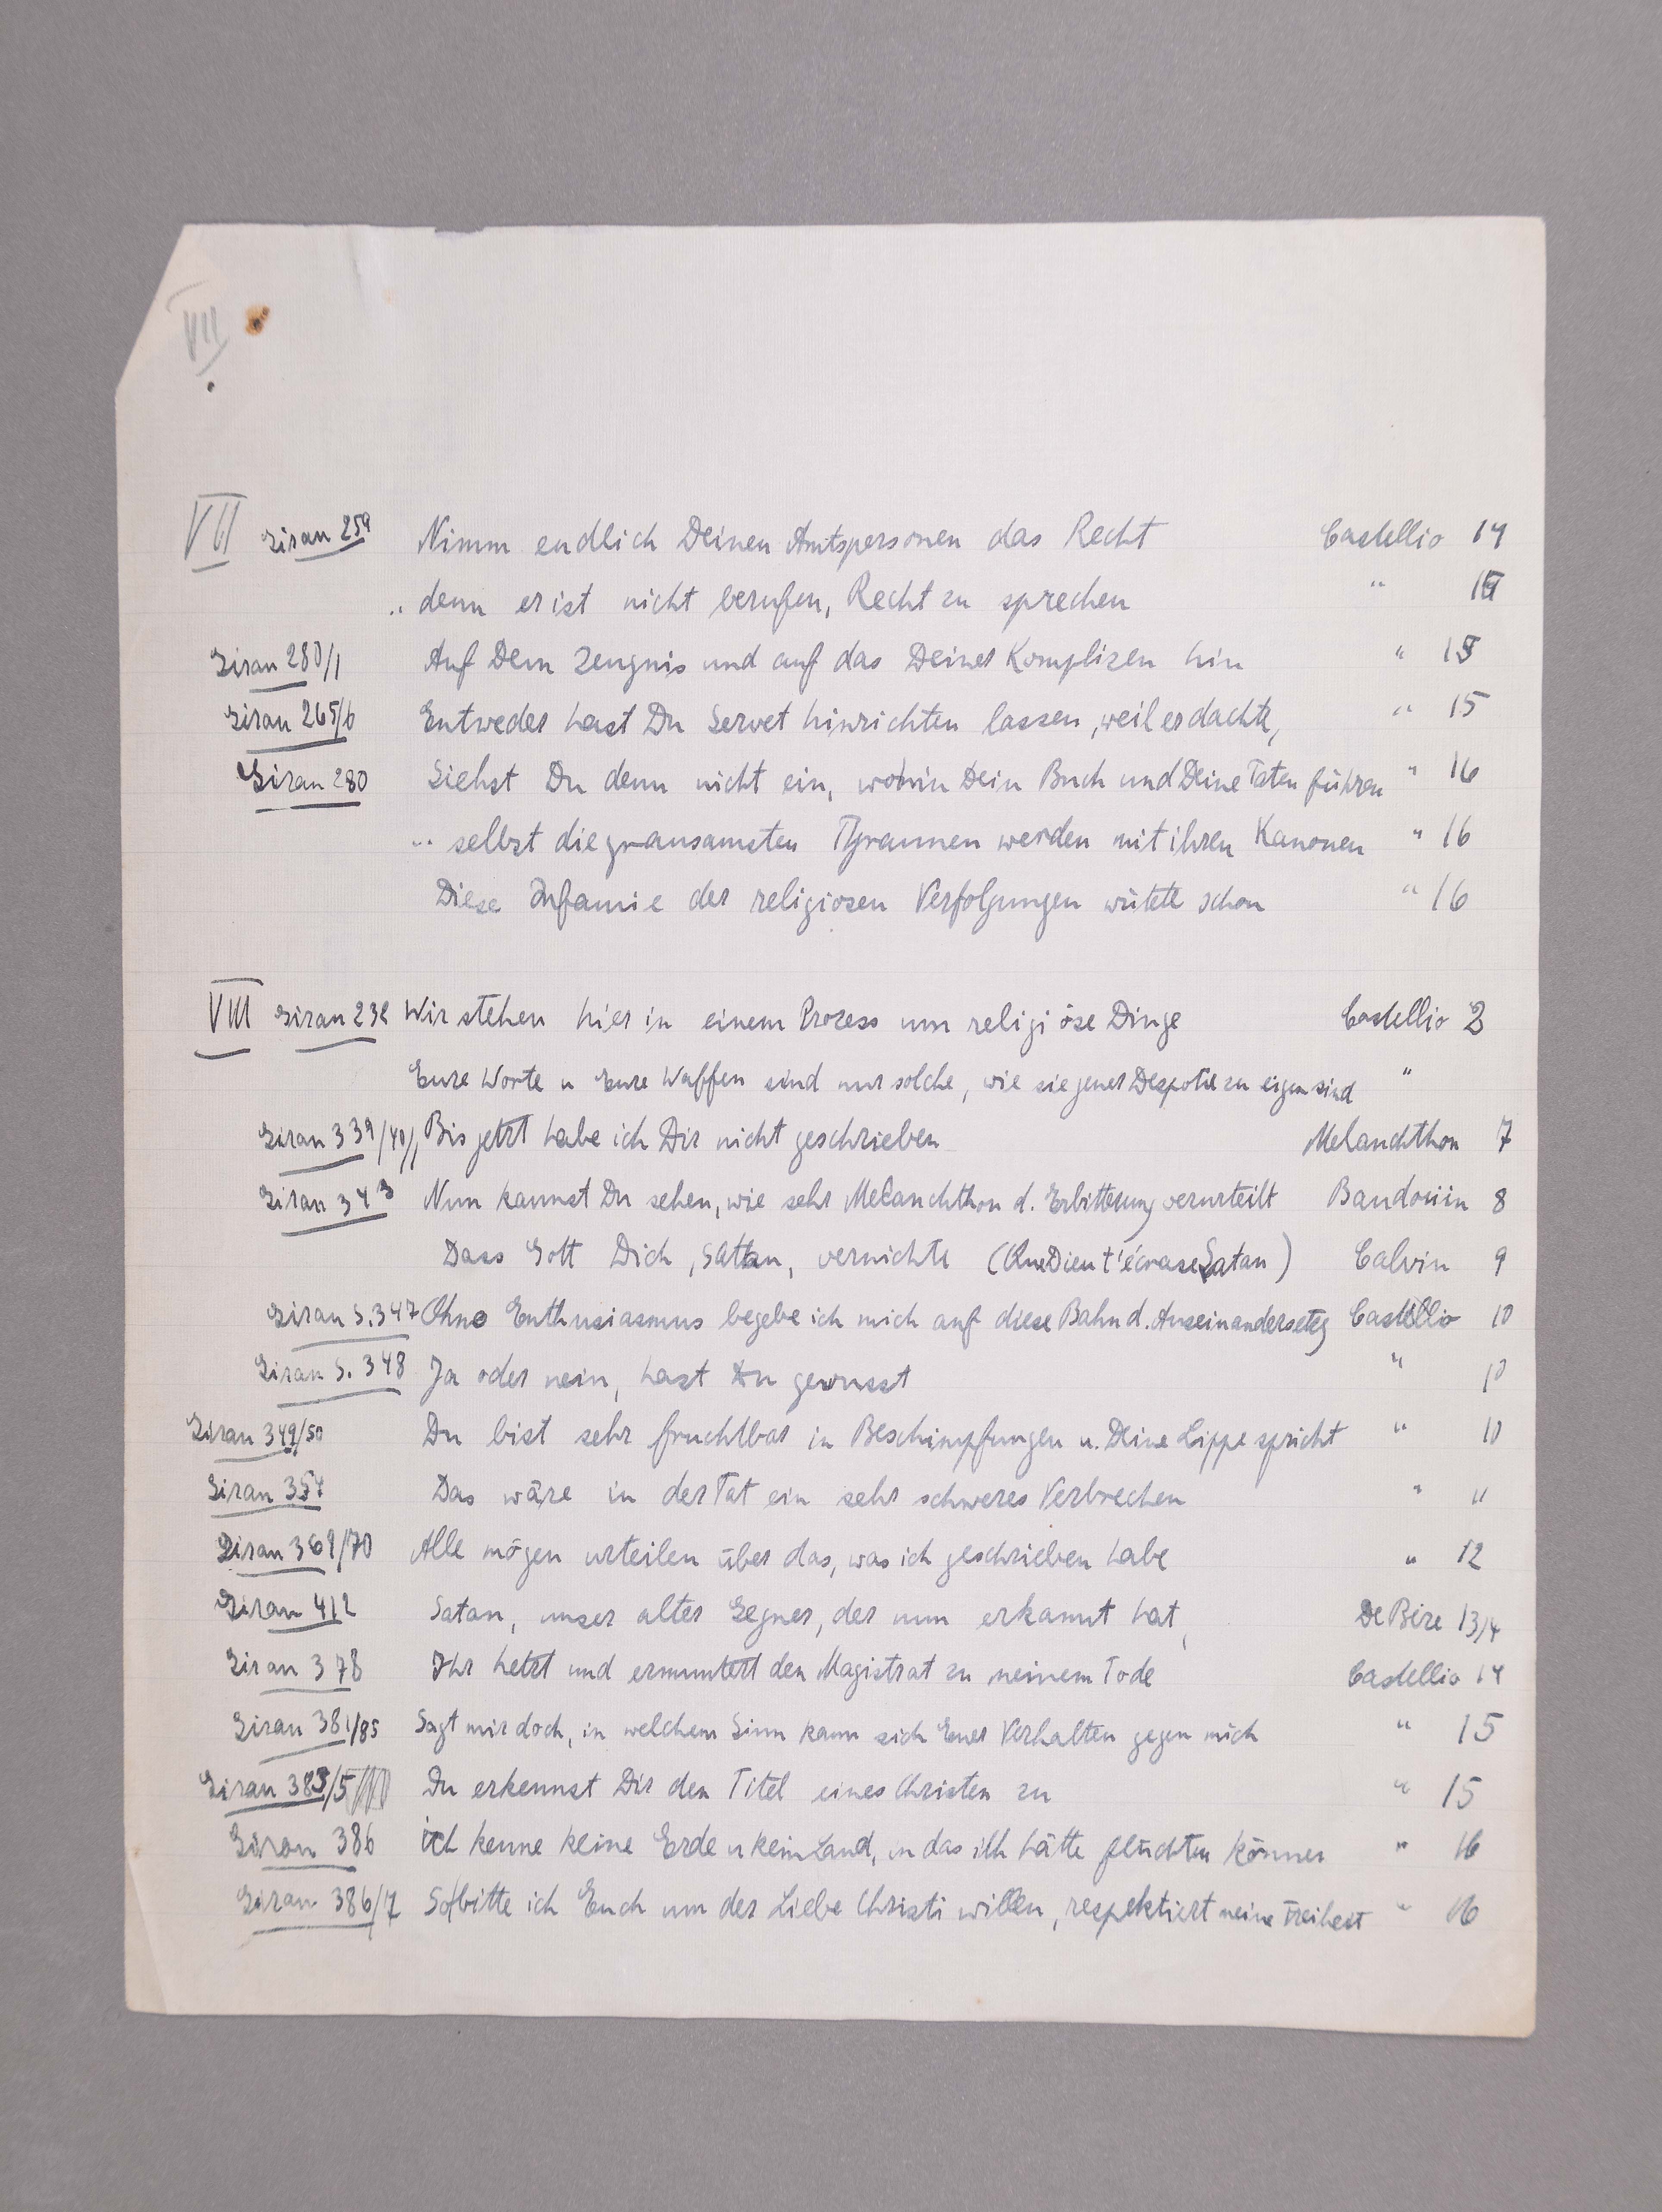 VII
VII Giran 259 Nimm endlich Deinen Amtspersonen das Recht Castellio 14
.. denn er ist nicht berufen, Recht zu sprechen "
Giran 280/1 Auf Dein Zeugnis und auf das Deiner Komplizen hin " 15
Giran 265/6 Entweder hast Du Servet hinrichten lassen, weil er dachte, " 15
Giran 280 Siehst Du denn nicht ein, wohin Dein Buch und Deine Taten führen " 16
.. selbst die grausamsten Tyrannen werden mit ihren Kanonen " 16
Diese Infamie der religiosen Verfolgungen wütete schon " 16
VIII Giran 232 Wir stehen hier in einem Prozess um religiöse Dinge Castellio 2
Eure Worte u Eure Waffen sind nur solche, wie sie jener Despotie zu eigen sind "
Giran 339/40/1 Bis jetzt habe ich Dir nicht geschrieben Melanchthon 7
Giran 343 Nun kannst Du sehen, wie sehr Melanchthon d. Erbitterung verurteilt Baudouin 8
Dass Gott Dich, Satan, vernichte (Que Dieu t'écrase Satan) Calvin 9
Giran S. 347 Ohne Enthusiasmus begebe ich mich auf diese Bahn d. Auseinandersetzg Castellio 10
Giran S. 348 Ja oder nein, hast Du gewusst " 10
Giran 349/50 Du bist sehr fruchtbar in Beschimpfungen u. Deine Lippe spricht " 10
Giran 357 Das wäre in der Tat ein sehr schweres Verbrechen " 11
Giran 369/70 Alle mögen urteilen über das, was ich geschrieben habe " 12
Giran 412 Satan, unser alter Gegner, der nun erkannt hat, De Bèze 13/4
Giran 378 Ihr hetzt und ermuntert den Magistrat zu meinem Tode Castellio 14
Giran 381/85 Sagt mir doch, in welchem Sinn kann sich Euer Verhalten gegen mich " 15
Giran 383/5 Du erkennst Dir den Titel eines Christen zu " 15
Giran 386 ich kenne keine Erde u kein Land, in das ich hätte flüchten können " 16
Giran 386/7 So bitte ich Euch um der Liebe Christi willen, respektiert meine Freiheit " 16